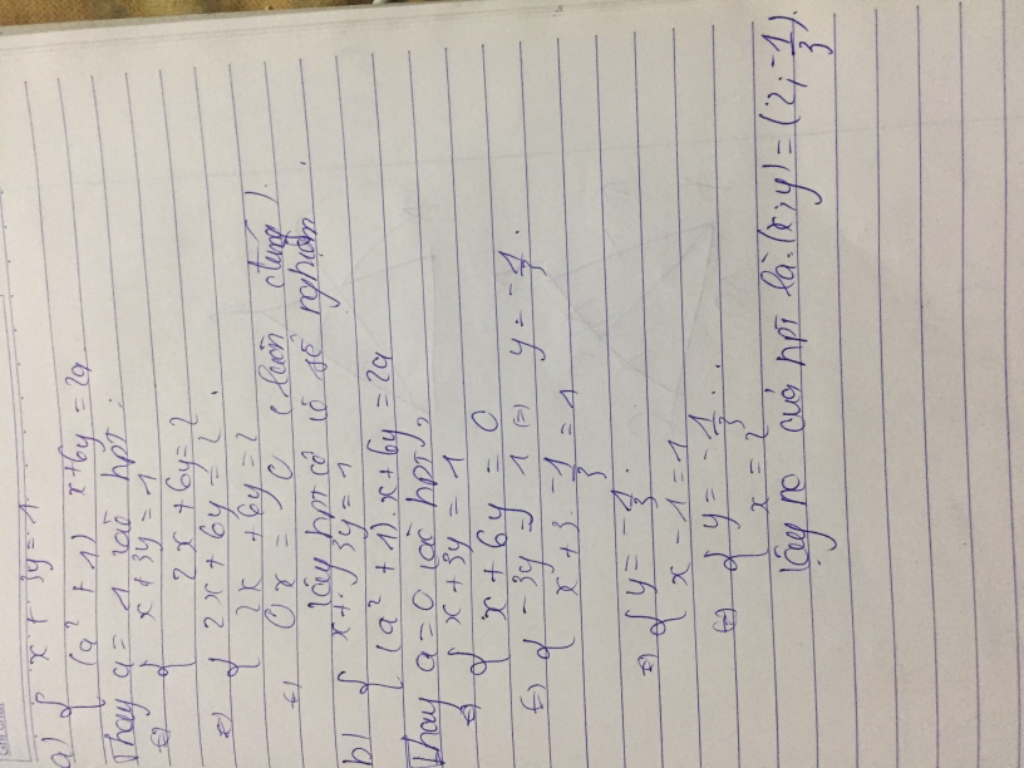 a) { x + 3y = 1
(a² + 1) x + 6y = 2a
Thay a = 1 vào hpt:
⇔ { x + 3y = 1
2x + 6y = 2
⇔ { 2x + 6y = 2
2x + 6y = 2
⇔ 0x = 0 (luôn đúng).
Vậy hpt có vô số nghiệm
b) { x + 3y = 1
(a² + 1).x + 6y = 2a
Thay a = 0 vào hpt,
⇔ { x + 3y = 1
x + 6y = 0
⇔ { -3y = 1 ⇔ y = -1/3.
x + 3. -1/3 = 1
⇔ { y = -1/3.
x - 1 = 1
⇔ { y = -1/3.
x = 2
Vậy no của hpt là: (x;y) = (2; -1/3).